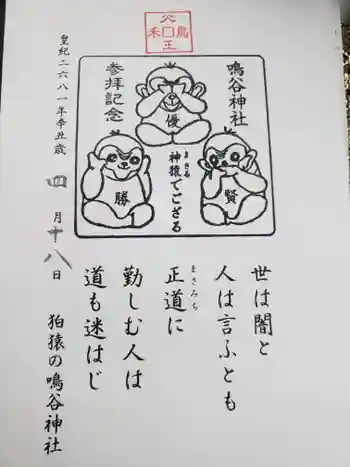 鳴谷神社
参拝記念
優
勝
賢
まさる
神猿でござる
皇紀二六八一年辛丑歳
四月十八日
世は闇と
人は言ふとも
まさみち
正道に
勤しむ人は
道も迷はじ
狛猿の鳴谷神社